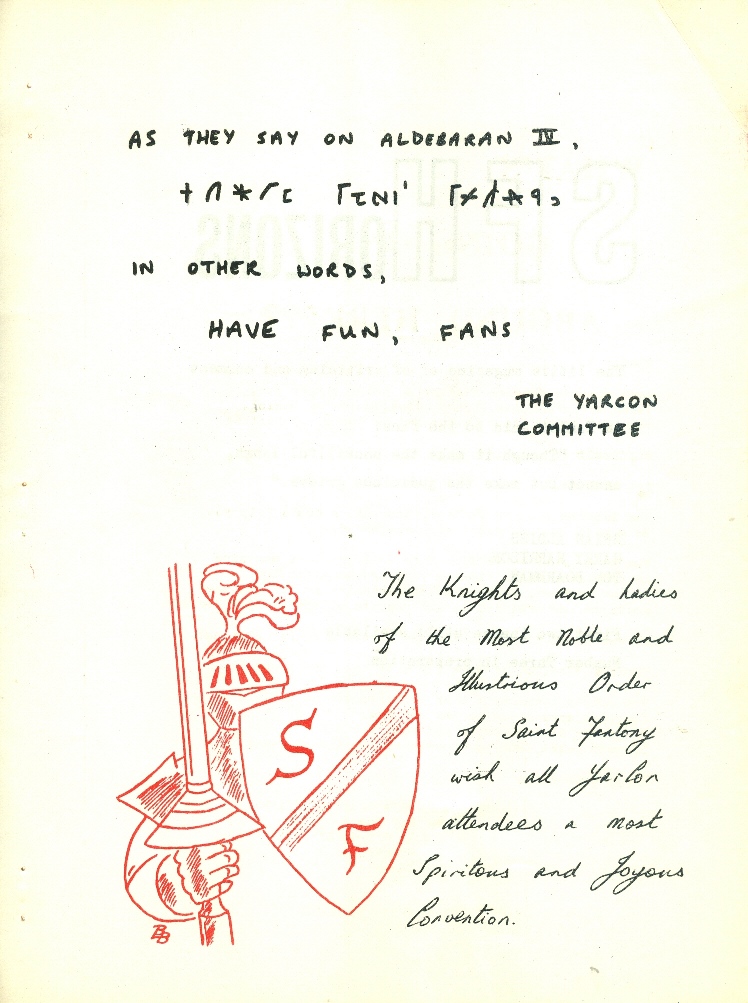 AS THEY SAY ON ALDEBARAN IV,
IN OTHER WORDS,
HAVE FUN, FANS
THE YARCON
COMMITTEE
The Knights and Ladies
of the Most Noble and
Illustrious Order
of Saint Fantony
wish all YarCon
attendees a most
Spiritous and Joyous
Convention.
S
F
BB